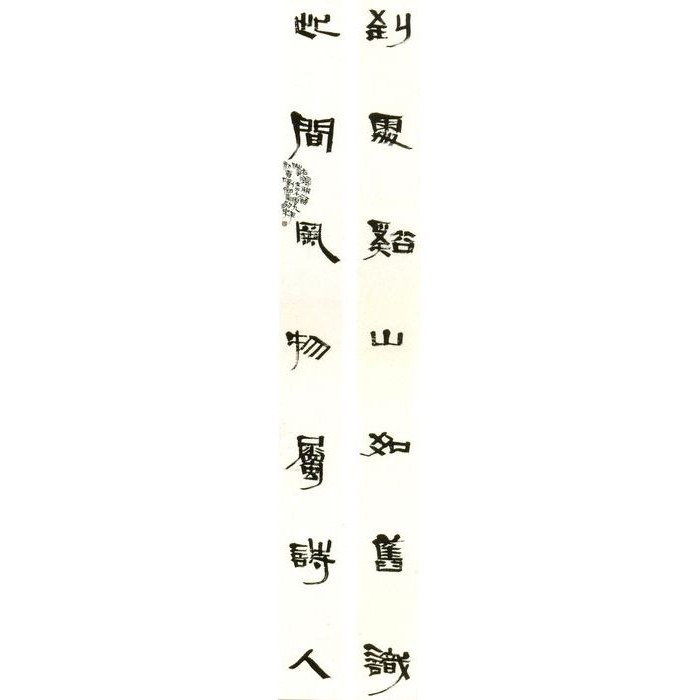 到處谿山如舊識
此間風物屬詩人